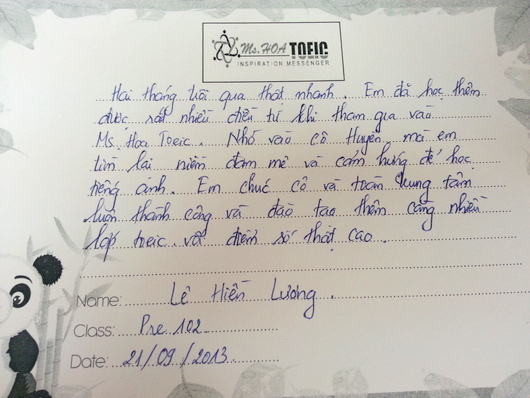 Ms. HOA TOEIC
INSPIRATION MESSENGER
Hai tháng trôi qua thật nhanh. Em đã học thêm
được rất nhiều điều từ khi tham gia vào
Ms. Hoa Toeic. Nhờ vào cô Huyền mà em
tìm lại niềm đam mê và cảm hứng để học
tiếng anh. Em chúc cô và toàn trung tâm
luôn thành công và đào tạo thêm càng nhiều
lớp toeic với điểm số thật cao.
Name: Lê Hiền Lương.
Class: Pre 102
Date: 21/09/2013